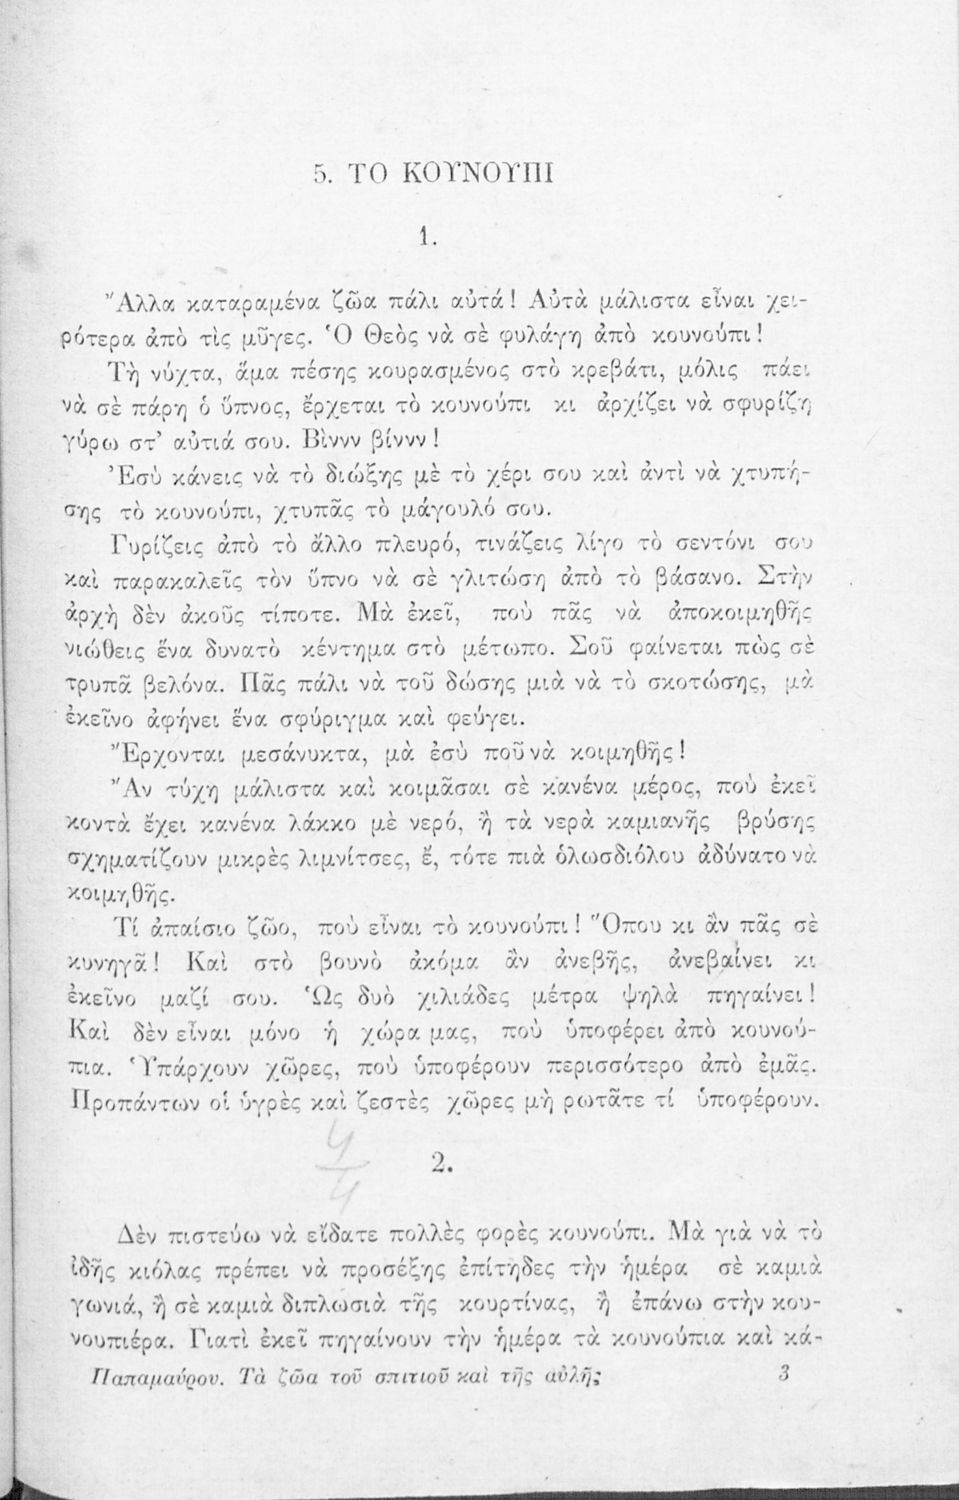 5. ΤΟ ΚΟΥΝΟΥΠΙ
1.
Ἄλλα καταραμένα ζῶα πάλι αὐτά! Αὐτὰ μάλιστα εἶναι χει-
ρότερα ἀπὸ τὶς μῦγες. Ὁ Θεὸς νὰ σὲ φυλάγῃ ἀπὸ κουνούπι!
Τὴ νύχτα, ἅμα πέσῃς κουρασμένος στὸ κρεβάτι, μόλις πάει
νὰ σὲ πάρῃ ὁ ὕπνος, ἔρχεται τὸ κουνούπι κι ἀρχίζει νὰ σφυρίζῃ
γύρω στ’ αὐτιά σου. Βὶννν βίννν!
Ἐσὺ κάνεις νὰ τὸ διώξῃς μὲ τὸ χέρι σου καὶ ἀντὶ νὰ χτυπή-
σῃς τὸ κουνούπι, χτυπᾶς τὸ μάγουλό σου.
Γυρίζεις ἀπὸ τὸ ἄλλο πλευρό, τινάζεις λίγο τὸ σεντόνι σου
καὶ παρακαλεῖς τὸν ὕπνο νὰ σὲ γλιτώσῃ ἀπὸ τὸ βάσανο. Στὴν
ἀρχὴ δὲν ἀκοῦς τίποτε. Μὰ ἐκεῖ, ποὺ πᾶς νὰ ἀποκοιμηθῇς
νιώθεις ἕνα δυνατὸ κέντημα στὸ μέτωπο. Σοῦ φαίνεται πὼς σὲ
τρυπᾶ βελόνα. Πᾶς πάλι νὰ τοῦ δώσῃς μιὰ νὰ τὸ σκοτώσῃς, μὰ
ἐκεῖνο ἀφήνει ἕνα σφύριγμα καὶ φεύγει.
Ἔρχονται μεσάνυκτα, μὰ ἐσὺ ποῦ νὰ κοιμηθῇς!
Ἂν τύχῃ μάλιστα καὶ κοιμᾶσαι σὲ κανένα μέρος, ποὺ ἐκεῖ
κοντὰ ἔχει κανένα λάκκο μὲ νερό, ἢ τὰ νερὰ καμιανῆς βρύσης
σχηματίζουν μικρὲς λιμνίτσες, ἔ, τότε πιὰ ὁλωσδιόλου ἀδύνατο νὰ
κοιμηθῇς.
Τί ἀπαίσιο ζῶο, ποὺ εἶναι τὸ κουνούπι! Ὅπου κι ἂν πᾶς σὲ
κυνηγᾶ! Καὶ στὸ βουνὸ ἀκόμα ἂν ἀνεβῇς, ἀνεβαίνει κι
ἐκεῖνο μαζί σου. Ὡς δυὸ χιλιάδες μέτρα ψηλὰ πηγαίνει!
Καὶ δὲν εἶναι μόνο ἡ χώρα μας, ποὺ ὑποφέρει ἀπὸ κουνού-
πια. Ὑπάρχουν χῶρες, ποὺ ὑποφέρουν περισσότερο ἀπὸ ἐμᾶς.
Προπάντων οἱ ὑγρὲς καὶ ζεστὲς χῶρες μὴ ρωτᾶτε τί ὑποφέρουν.
4
4
2.
Δὲν πιστεύω νὰ εἴδατε πολλὲς φορὲς κουνούπι. Μὰ γιὰ νὰ τὸ
ἰδῇς κιόλας πρέπει νὰ προσέξῃς ἐπίτηδες τὴν ἡμέρα σὲ καμιὰ
γωνιά, ἢ σὲ καμιὰ διπλωσιὰ τῆς κουρτίνας, ἢ ἐπάνω στὴν κου-
νουπιέρα. Γιατὶ ἐκεῖ πηγαίνουν τὴν ἡμέρα τὰ κουνούπια καὶ κά-
Παπαμαύρου. Τὰ ζῶα τοῦ σπιτιοῦ καὶ τῆς αὐλῆς 3